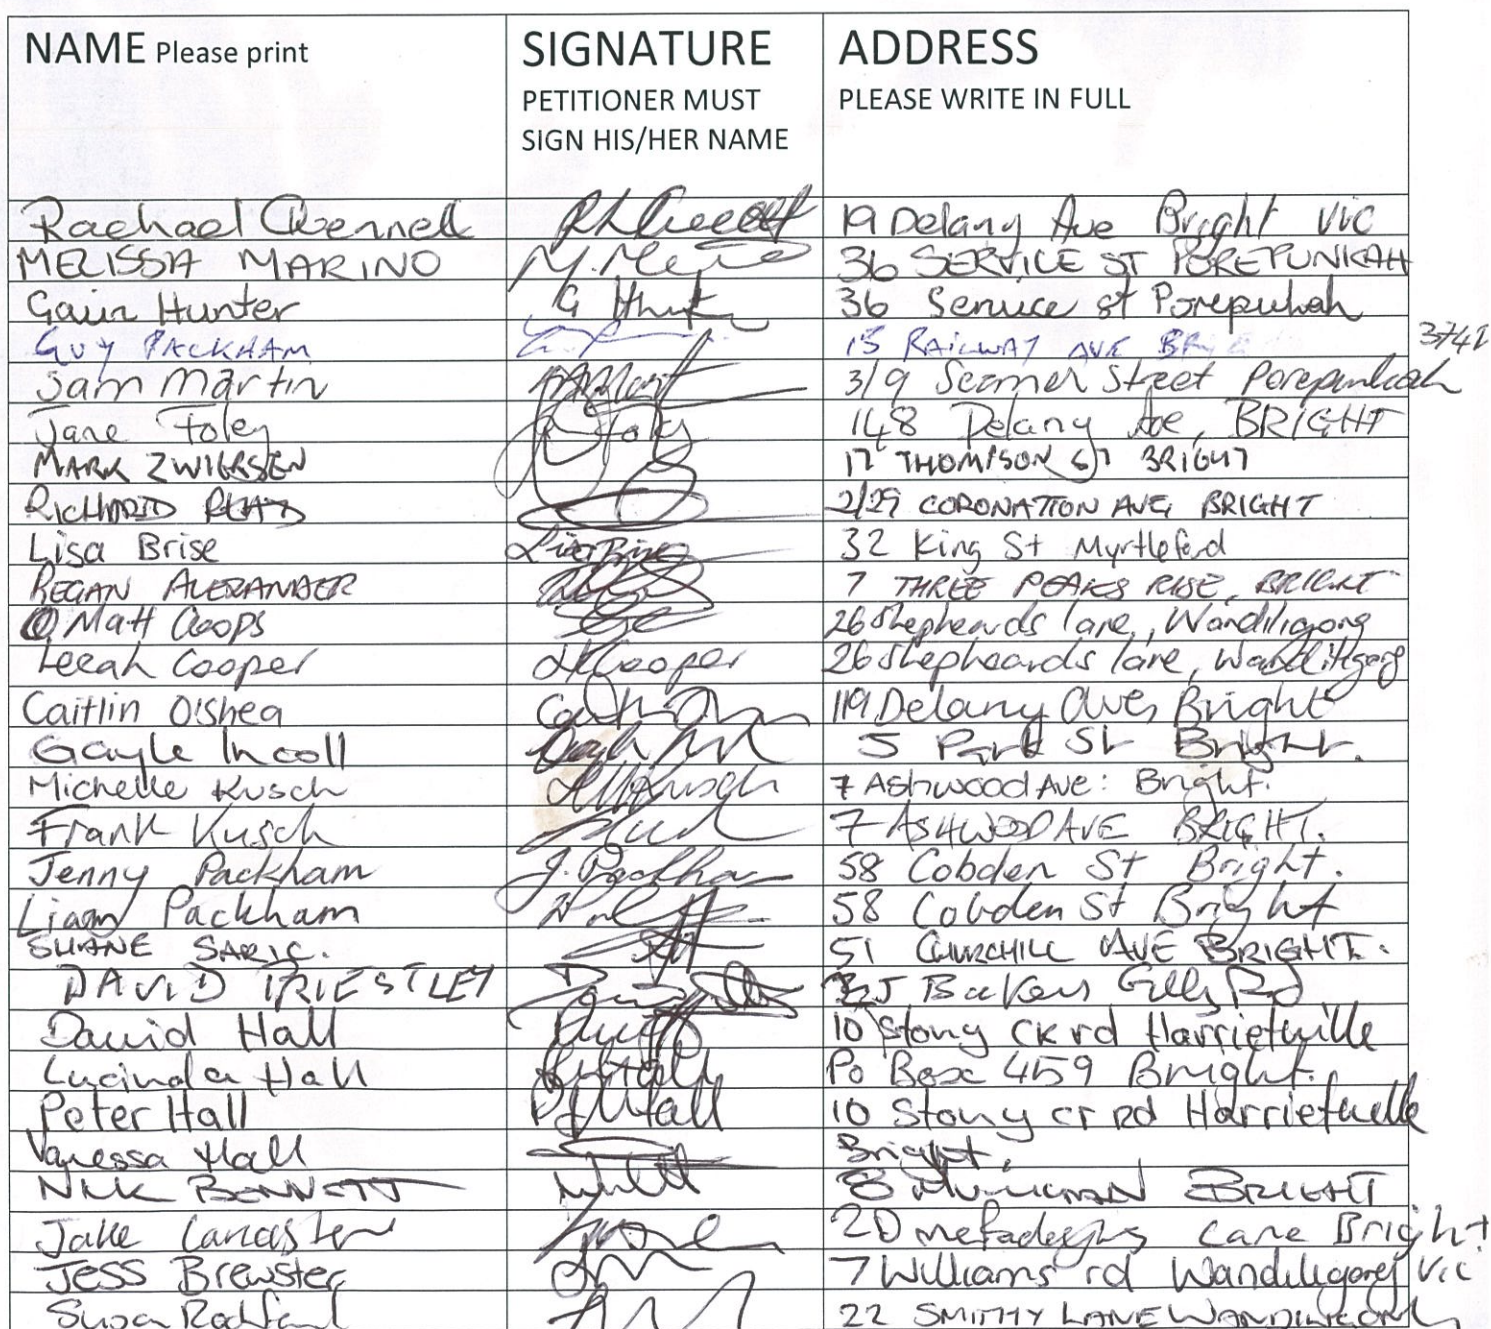 NAME Please print SIGNATURE ADDRESS
PETITIONER MUST PLEASE WRITE IN FULL
SIGN HIS/HER NAME
Rachael 19 Delany Ave Bright VIC
MELISSA MARINO 36 SERVICE ST POREPUNKAH
Hunter G Hunt 36 Service st Porepunkah
GUY PACKHAM 15 RAILWAY AVE 3741
Sam Martin 3/9 Street Porepunkah
Jane Foley J Foley 148 Delany Ave, BRIGHT
MARK ZWIERSEN 17 THOMPSON ST BRIGHT
RICHARD 2/29 CORONATION AVE, BRIGHT
Lisa Brise Lisa Brise 32 King St Myrtleford
REGAN ALEXANDER 7 THREE PEAKS RISE, BRIGHT
Matt Coops 26 Shepheards lane, Wandiligong
Leeah Cooper LCooper 26 Shepheards lane, Wandiligong
Caitlin O'Shea 119 Delany Ave, Bright
Gayle Incoll 5 Park St Bright.
Michelle Kusch Kusch 7 Ashwood Ave: Bright.
Frank Kusch 7 ASHWOOD AVE BRIGHT.
Jenny Packham J. Packham 58 Cobden St Bright.
Liam Packham 58 Cobden St Bright
SARIC. 51 CHURCHILL AVE BRIGHT.
DAVID PRIESTLEY Bakers Gully Rd
David Hall 10 Stony ck rd Harrietville
Lucinda Hall Po Box 459 Bright.
Peter Hall Hall 10 Stony cr rd Harrietville
Vanessa Hall Bright,
NICK BENNETT 8 BRIGHT
Jake Lancaster 20 Lane Bright
Jess Brewster 7 Williams rd Wandiligong Vic
22 SMITHY LANE WANDILIGONG